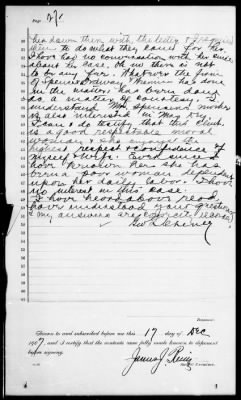 Page 24
her down there with the letter & I asked
them to do what they could for her.
I have had no conversation with her since
about her case, or no there is not
to be any fee. Whatever the firm
of Spencer Ordway & Wierum has done
in the matter, has been done
as a matter of courtesy. I
understand Mr. Spencer's mother
is also interested in Mrs
I can & do testify that this
is a good respectable moral
woman & she enjoys the
highest respect & confidence of
myself & wife. Ever since I
have known her she has
been a poor woman depending
upon her daily labor. I have
no interest in this case.
I have heard above read
have understood your questions
& my answers are correctly recorded
Deponent.
Sworn to and subscribed before me this 17 day of Dec
1907, and I certify that the contents were fully made known to deponent
before signing.
Special Examiner.